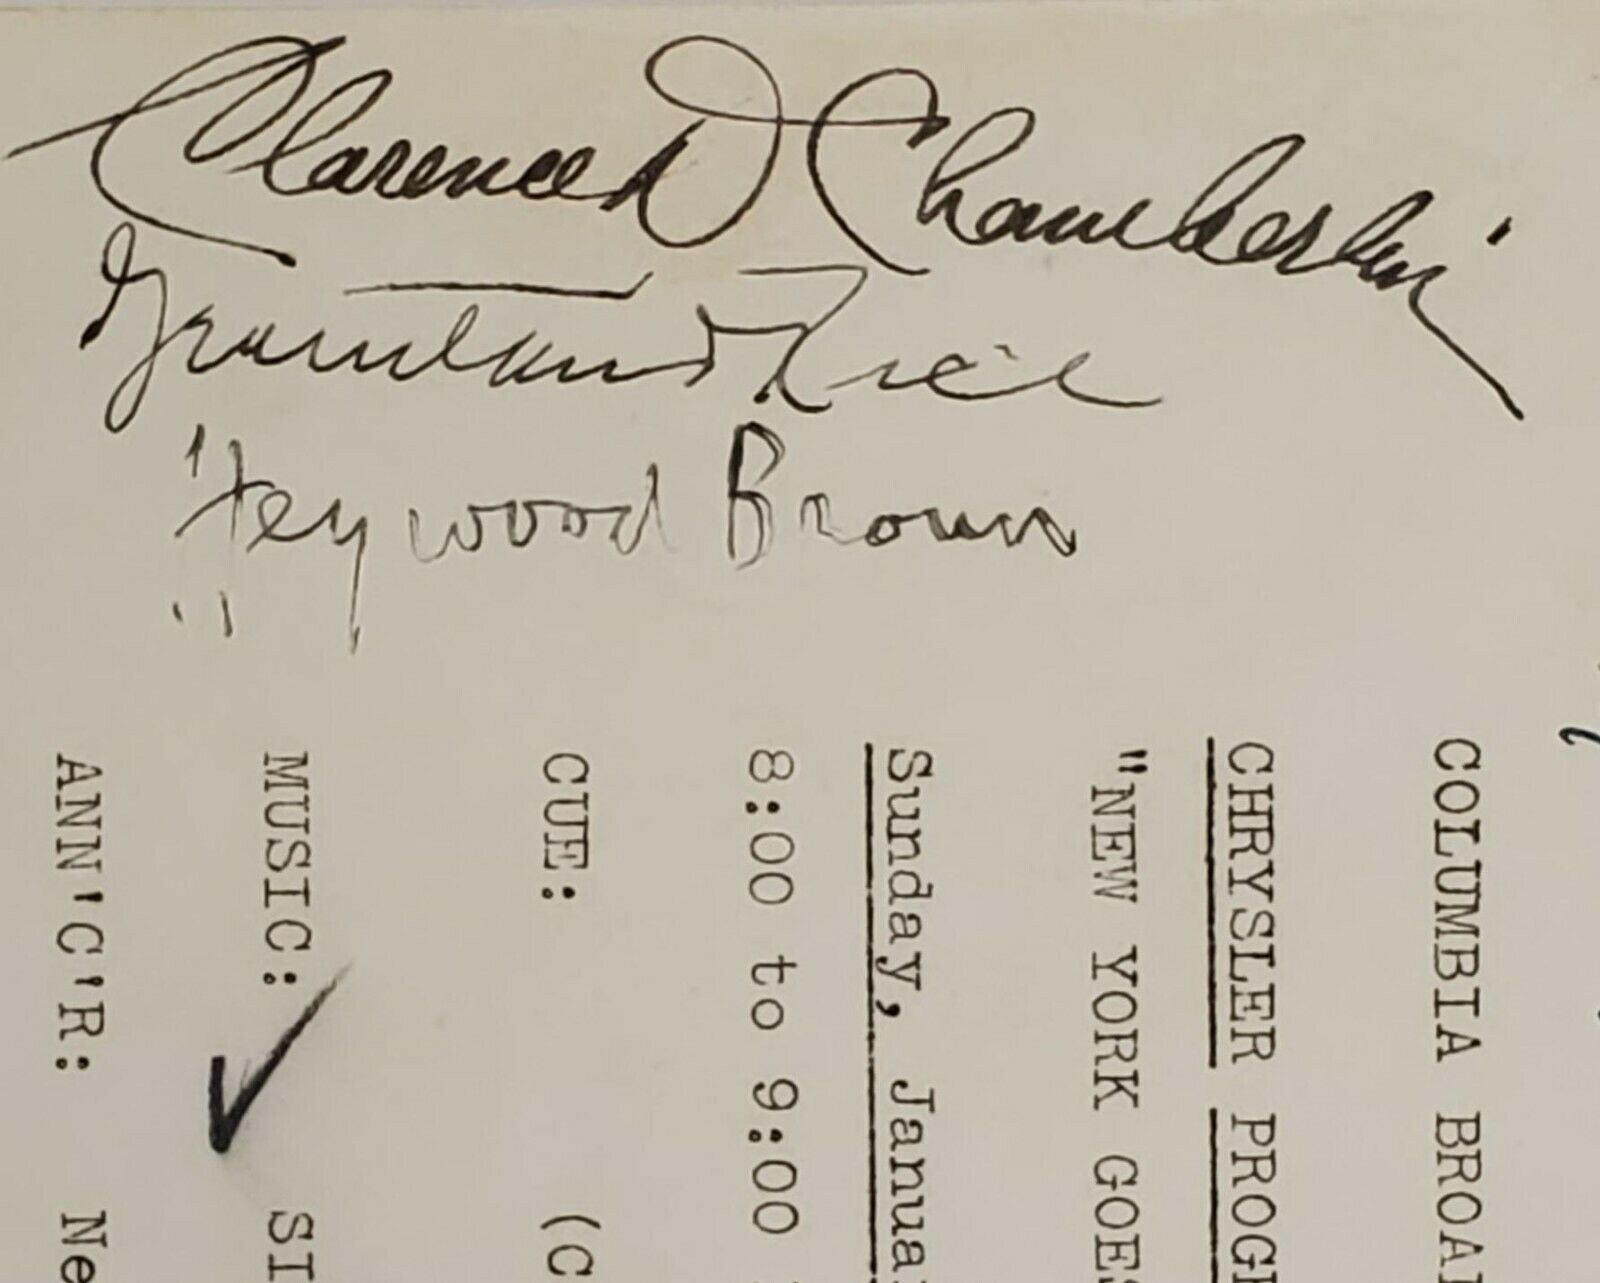 Clarence D Chamberlin
Grantland Rice
Heywood Broun
COLUMBIA BROA
CHRYSLER PROG
"NEW YORK GOES
Sunday, Januar
8:00 to 9:00
CUE: (C
MUSIC: SI
ANN'C'R: Ne